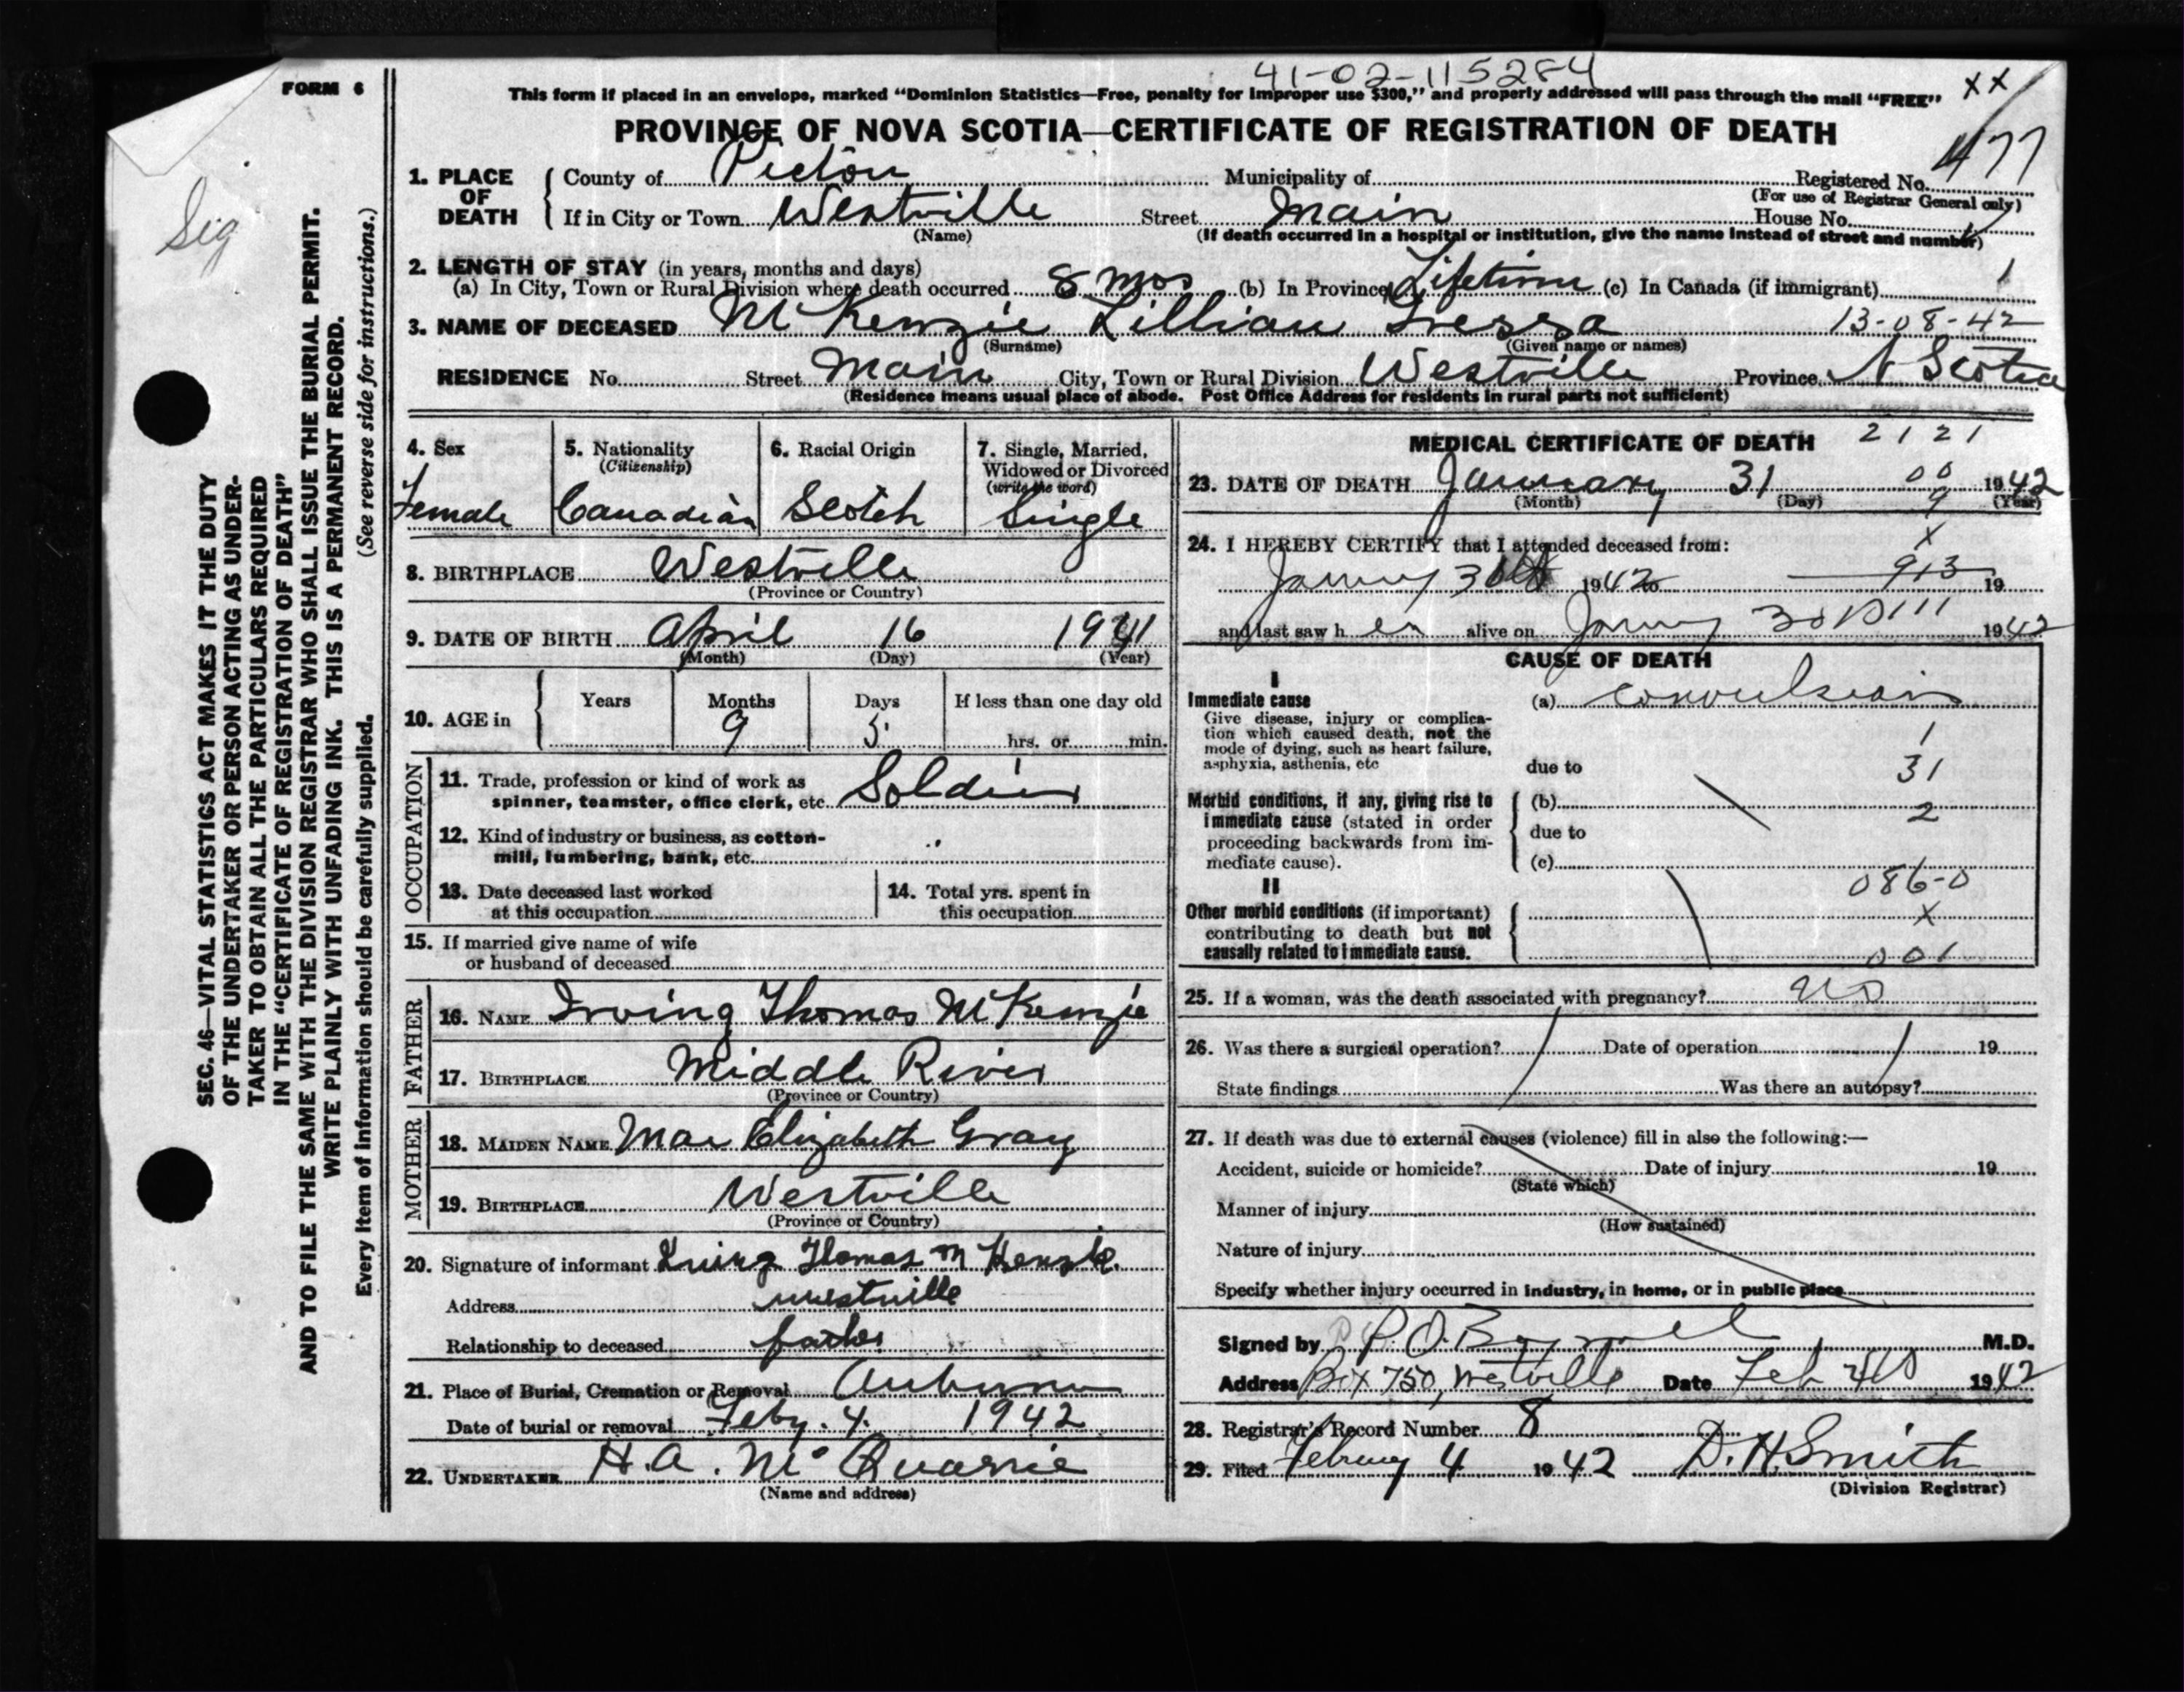 41-02-115284
FORM 6
This form if placed in an envelope, marked "Dominion Statistics—Free, penalty for improper use $300," and properly addressed will pass through the mail "FREE"
XX
PROVINCE OF NOVA SCOTIA—CERTIFICATE OF REGISTRATION OF DEATH
Sig
SEC. 46—VITAL STATISTICS ACT MAKES IT THE DUTY
OF THE UNDERTAKER OR PERSON ACTING AS UNDER-
TAKER TO OBTAIN ALL THE PARTICULARS REQUIRED
IN THE "CERTIFICATE OF REGISTRATION OF DEATH"
AND TO FILE THE SAME WITH THE DIVISION REGISTRAR WHO SHALL ISSUE THE BURIAL PERMIT.
WRITE PLAINLY WITH UNFADING INK. THIS IS A PERMANENT RECORD.
Every item of information should be carefully supplied. (See reverse side for instructions.)
1. PLACE OF DEATH
County of Pictou Municipality of Registered No. 477
(For use of Registrar General only)
If in City or Town Westville Street Main House No.
(Name) (If death occurred in a hospital or institution, give the name instead of street and number)
2. LENGTH OF STAY (in years, months and days)
(a) In City, Town or Rural Division where death occurred 8 mos (b) In Province Lifetime (c) In Canada (if immigrant) 1
3. NAME OF DECEASED McKenzie Lillian 13-08-42
(Surname) (Given name or names)
RESIDENCE No. Street Main City, Town or Rural Division Westville Province N Scotia
(Residence means usual place of abode. Post Office Address for residents in rural parts not sufficient)
4. Sex Female
5. Nationality (Citizenship) Canadian
6. Racial Origin Scotch
7. Single, Married, Widowed or Divorced (write the word) Single
8. BIRTHPLACE Westville
(Province or Country)
9. DATE OF BIRTH April 16 1941
(Month) (Day) (Year)
10. AGE in Years Months 9 Days 5 If less than one day old hrs. or min.
OCCUPATION
11. Trade, profession or kind of work as
spinner, teamster, office clerk, etc. Soldier
12. Kind of industry or business, as cotton-
mill, lumbering, bank, etc.
13. Date deceased last worked
at this occupation
14. Total yrs. spent in
this occupation
15. If married give name of wife
or husband of deceased
FATHER
16. NAME Irving Thomas McKenzie
17. BIRTHPLACE Middle River
(Province or Country)
MOTHER
18. MAIDEN NAME Mae Elizabeth Gray
19. BIRTHPLACE Westville
(Province or Country)
20. Signature of informant Irving Thomas McKenzie
Address Westville
Relationship to deceased father
21. Place of Burial, Cremation or Removal Auburn
Date of burial or removal Feby. 4. 1942
22. UNDERTAKER H.A. McQuarrie
(Name and address)
MEDICAL CERTIFICATE OF DEATH 2121
23. DATE OF DEATH January 31 00 1942
(Month) (Day) 9 (Year)
24. I HEREBY CERTIFY that I attended deceased from: X
1942 913 19
and last saw h er alive on 1942
CAUSE OF DEATH
I
Immediate cause
Give disease, injury or complica-
tion which caused death, not the
mode of dying, such as heart failure,
asphyxia, asthenia, etc
(a) convulsions
1
due to 31
Morbid conditions, if any, giving rise to
immediate cause (stated in order
proceeding backwards from im-
mediate cause).
(b)
2
due to
(c)
086-0
II
Other morbid conditions (if important)
contributing to death but not
causally related to immediate cause.
X
001
25. If a woman, was the death associated with pregnancy? no
26. Was there a surgical operation? Date of operation 19
State findings Was there an autopsy?
27. If death was due to external causes (violence) fill in also the following:—
Accident, suicide or homicide? Date of injury 19
(State which)
Manner of injury
(How sustained)
Nature of injury
Specify whether injury occurred in industry, in home, or in public place
Signed by M.D.
Address Box 750, Westville Date Feb 1942
28. Registrar's Record Number 8
29. Filed February 4 1942 D. H. Smith
(Division Registrar)